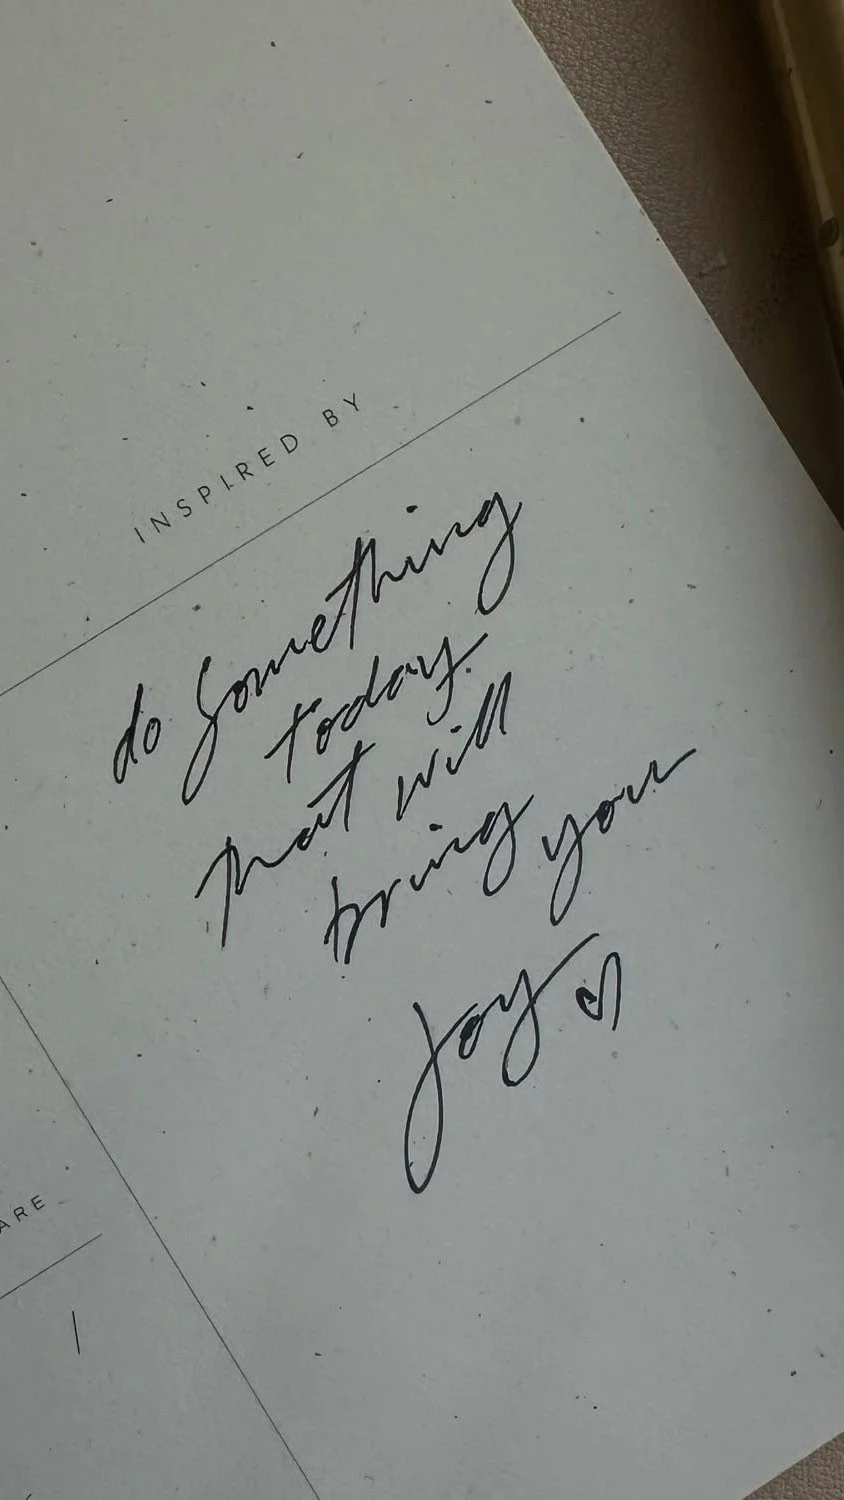 INSPIRED BY
do something
today
that will
bring you
Joy
ARE